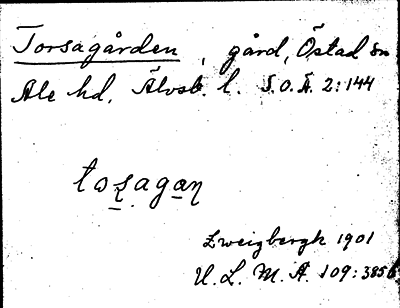 Torsagården, gård, Östad sn
Ale hd. Älvsb. l. S.O.Ä. 2:144
tosagan
Zweigbergk 1901
U.L.M.A. 109:385b